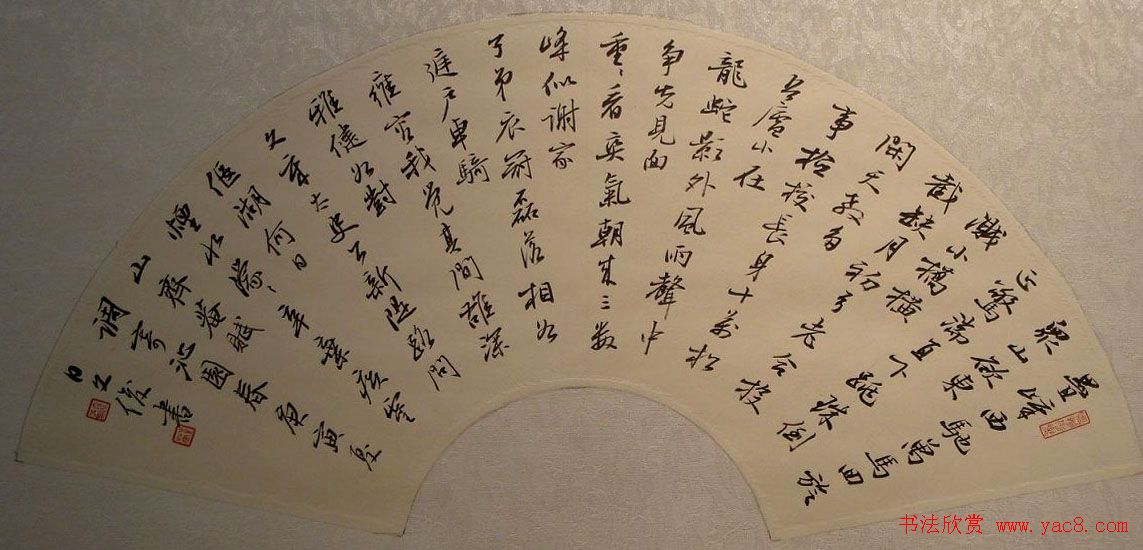 疊嶂西馳萬馬回旋
眾山欲東
正驚湍直下跳珠倒
濺小橋橫
截缺月初弓老合投
閑天教多
事檢校長身十萬松
吾廬小在
龍蛇影外風雨聲中
争先見面
重〻看爽氣朝來三數
峰似謝家
子弟衣冠磊落相如
庭戶車騎
雍容我覺其間雄深
雅健如對
文章太史公新堤路問
偃湖何日
煙水濛〻辛棄疾靈
山齊菴賦
調寄沁園春庚寅夏
日文俊書
书法欣赏 www.yac8.com